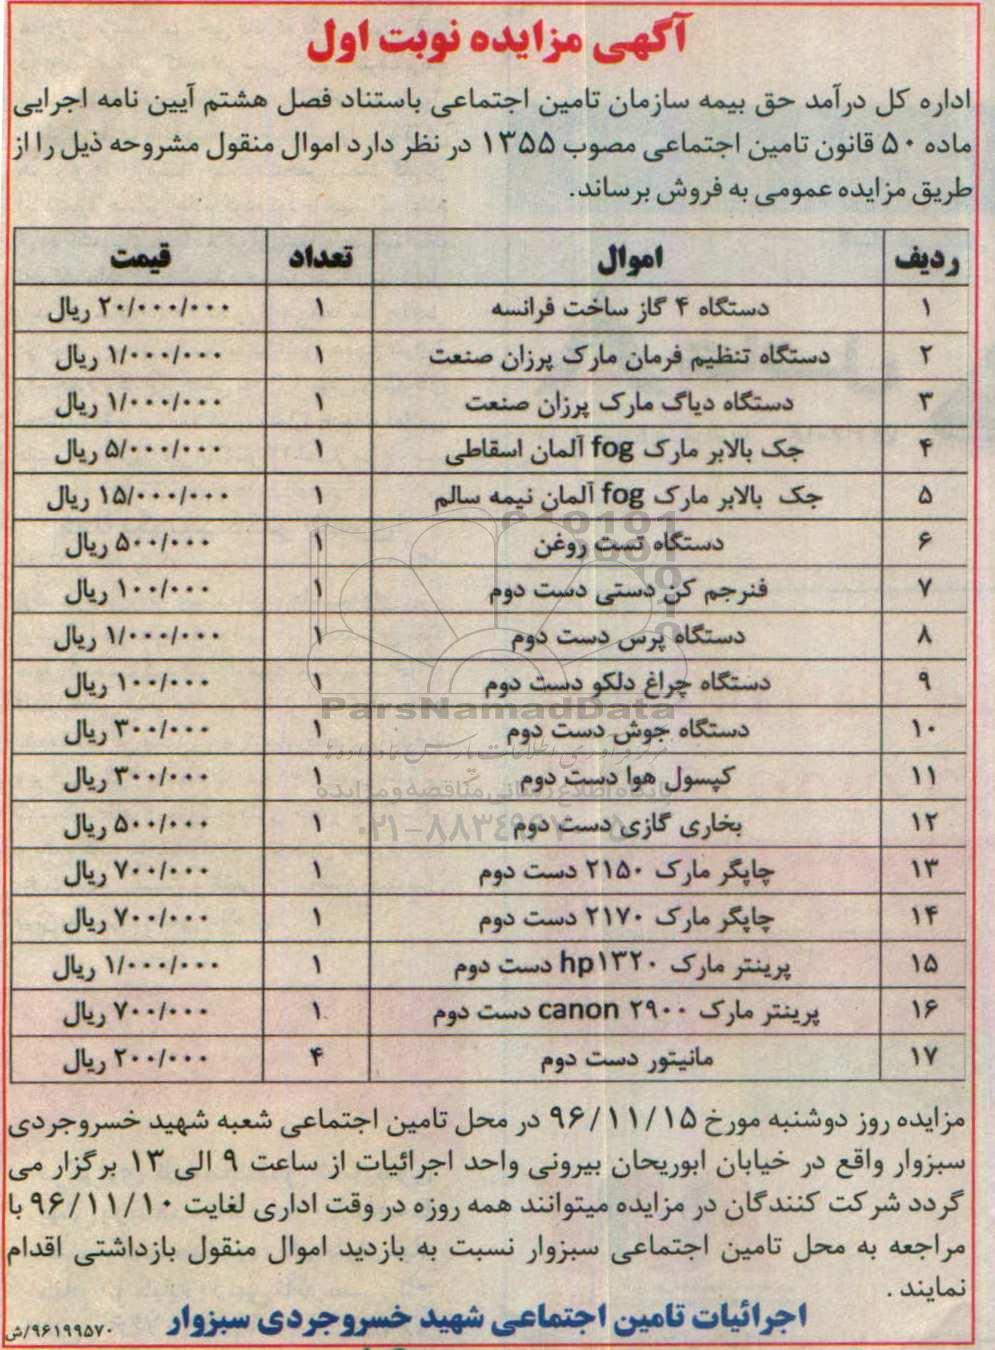 آگهی مزایده نوبت اول
اداره کل درآمد حق بیمه سازمان تامین اجتماعی باستناد فصل هشتم آیین نامه اجرایی
ماده ۵۰ قانون تامین اجتماعی مصوب ۱۳۵۵ در نظر دارد اموال منقول مشروحه ذیل را از
طریق مزایده عمومی به فروش برساند.
ردیف اموال تعداد قیمت
۱ دستگاه ۴ گاز ساخت فرانسه ۱ ۲۰/۰۰۰/۰۰۰ ریال
۲ دستگاه تنظیم فرمان مارک پرزان صنعت ۱ ۱/۰۰۰/۰۰۰ ریال
۳ دستگاه دیاگ مارک پرزان صنعت ۱ ۱/۰۰۰/۰۰۰ ریال
۴ جک بالابر مارک fog آلمان اسقاطی ۱ ۵/۰۰۰/۰۰۰ ریال
۵ جک بالابر مارک fog آلمان نیمه سالم ۱ ۱۵/۰۰۰/۰۰۰ ریال
۶ دستگاه تست روغن ۱ ۵۰۰/۰۰۰ ریال
۷ فنرجم کن دستی دست دوم ۱ ۱۰۰/۰۰۰ ریال
۸ دستگاه پرس دست دوم ۱ ۱/۰۰۰/۰۰۰ ریال
۹ دستگاه چراغ دلکو دست دوم ۱ ۱۰۰/۰۰۰ ریال
ParsNamadData
۱۰ دستگاه جوش دست دوم ۱ ۳۰۰/۰۰۰ ریال
۱۱ کپسول هوا دست دوم ۱ ۳۰۰/۰۰۰ ریال
۱۲ بخاری گازی دست دوم ۱ ۵۰۰/۰۰۰ ریال
۱۳ چاپگر مارک ۲۱۵۰ دست دوم ۱ ۷۰۰/۰۰۰ ریال
۱۴ چاپگر مارک ۲۱۷۰ دست دوم ۱ ۷۰۰/۰۰۰ ریال
۱۵ پرینتر مارک hp۱۳۲۰ دست دوم ۱ ۱/۰۰۰/۰۰۰ ریال
۱۶ پرینتر مارک canon ۲۹۰۰ دست دوم ۱ ۷۰۰/۰۰۰ ریال
۱۷ مانیتور دست دوم ۴ ۲۰۰/۰۰۰ ریال
مزایده روز دوشنبه مورخ ۹۶/۱۱/۱۵ در محل تامین اجتماعی شعبه شهید خسروجردی
سبزوار واقع در خیابان ابوریحان بیرونی واحد اجرائیات از ساعت ۹ الی ۱۳ برگزار می
گردد شرکت کنندگان در مزایده میتوانند همه روزه در وقت اداری لغایت ۹۶/۱۱/۱۰ با
مراجعه به محل تامین اجتماعی سبزوار نسبت به بازدید اموال منقول بازداشتی اقدام
نمایند .
اجرائیات تامین اجتماعی شهید خسروجردی سبزوار
۹۶۱۹۹۵۷۰/ش